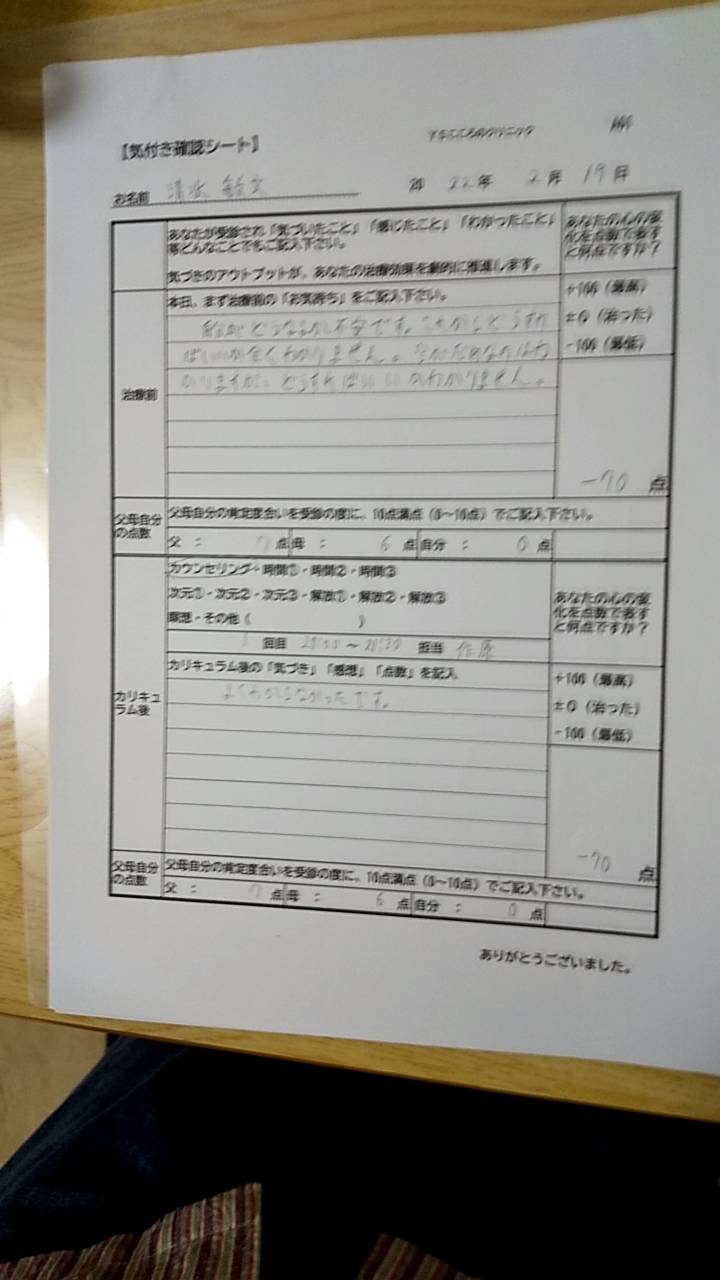 【気付き確認シート】
お名前 清水 敏文 20 22年 2月 19日
あなたが受診され「気づいたこと」「感じたこと」「わかったこと」
等どんなことでもご記入下さい。
気づきのアウトプットが、あなたの治療効果を劇的に推進します。
あなたの心の変
化を点数で表す
と何点ですか？
治療前
本日、まず治療前の「お気持ち」をご記入下さい。
どうなるか不安です。これからどうすれ
ばいいか全くわかりません。なのはわ
かりますが、どうすればいいかわかりません。
+100（最高）
±0（治った）
-100（最低）
-70 点
父母自分
の点数
父母自分の肯定度合いを受診の度に、10点満点（0～10点）でご記入下さい。
父： 7点 母： 6点 自分： 0点
カリキュ
ラム後
カウンセリング・時間①・時間②・時間③
次元①・次元②・次元③・解放①・解放②・解放③
瞑想・その他（ ）
1回目 ～ 担当
あなたの心の変
化を点数で表す
と何点ですか？
カリキュラム後の「気づき」「感想」「点数」を記入
よくわからなかったです。
+100（最高）
±0（治った）
-100（最低）
-70 点
父母自分
の点数
父母自分の肯定度合いを受診の度に、10点満点（0～10点）でご記入下さい。
父： 7点 母： 6点 自分： 0点
ありがとうございました。